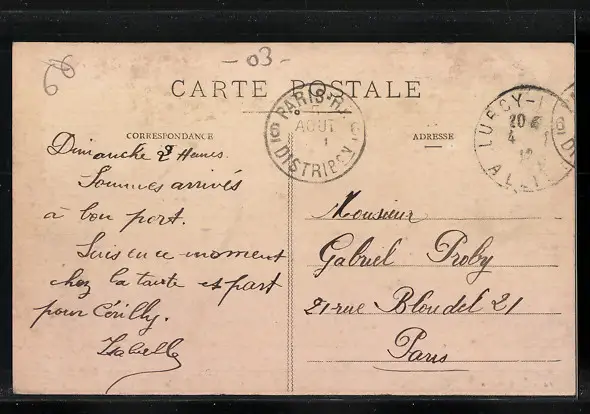 66
- 03 -
CARTE POSTALE
CORRESPONDANCE
ADRESSE
PARIS
DISTRIBON
AOUT
LURCY-L
20
4
ALLIER
Dimanche 2 Heures.
Sommes arrivés
à bon port.
Suis en ce moment
chez la tante et part
pour Cérilly.
Isabelle
Monsieur
Gabriel Proby
21 rue Blondel 21
Paris